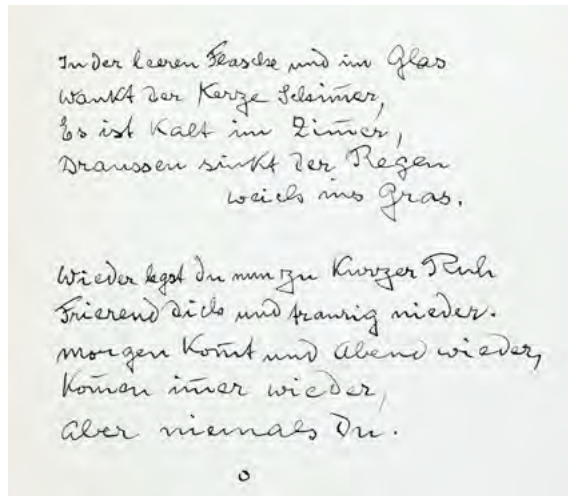 In der leeren Flasche und im Glas
Wankt der Kerze Schim̄er,
Es ist kalt im Zim̄er,
Draussen sinkt der Regen
weich ins Gras.
Wieder legst du nun zu kurzer Ruh
Frierend dich und traurig nieder.
Morgen kom̄t und Abend wieder,
Kom̄en im̄er wieder,
Aber niemals du.